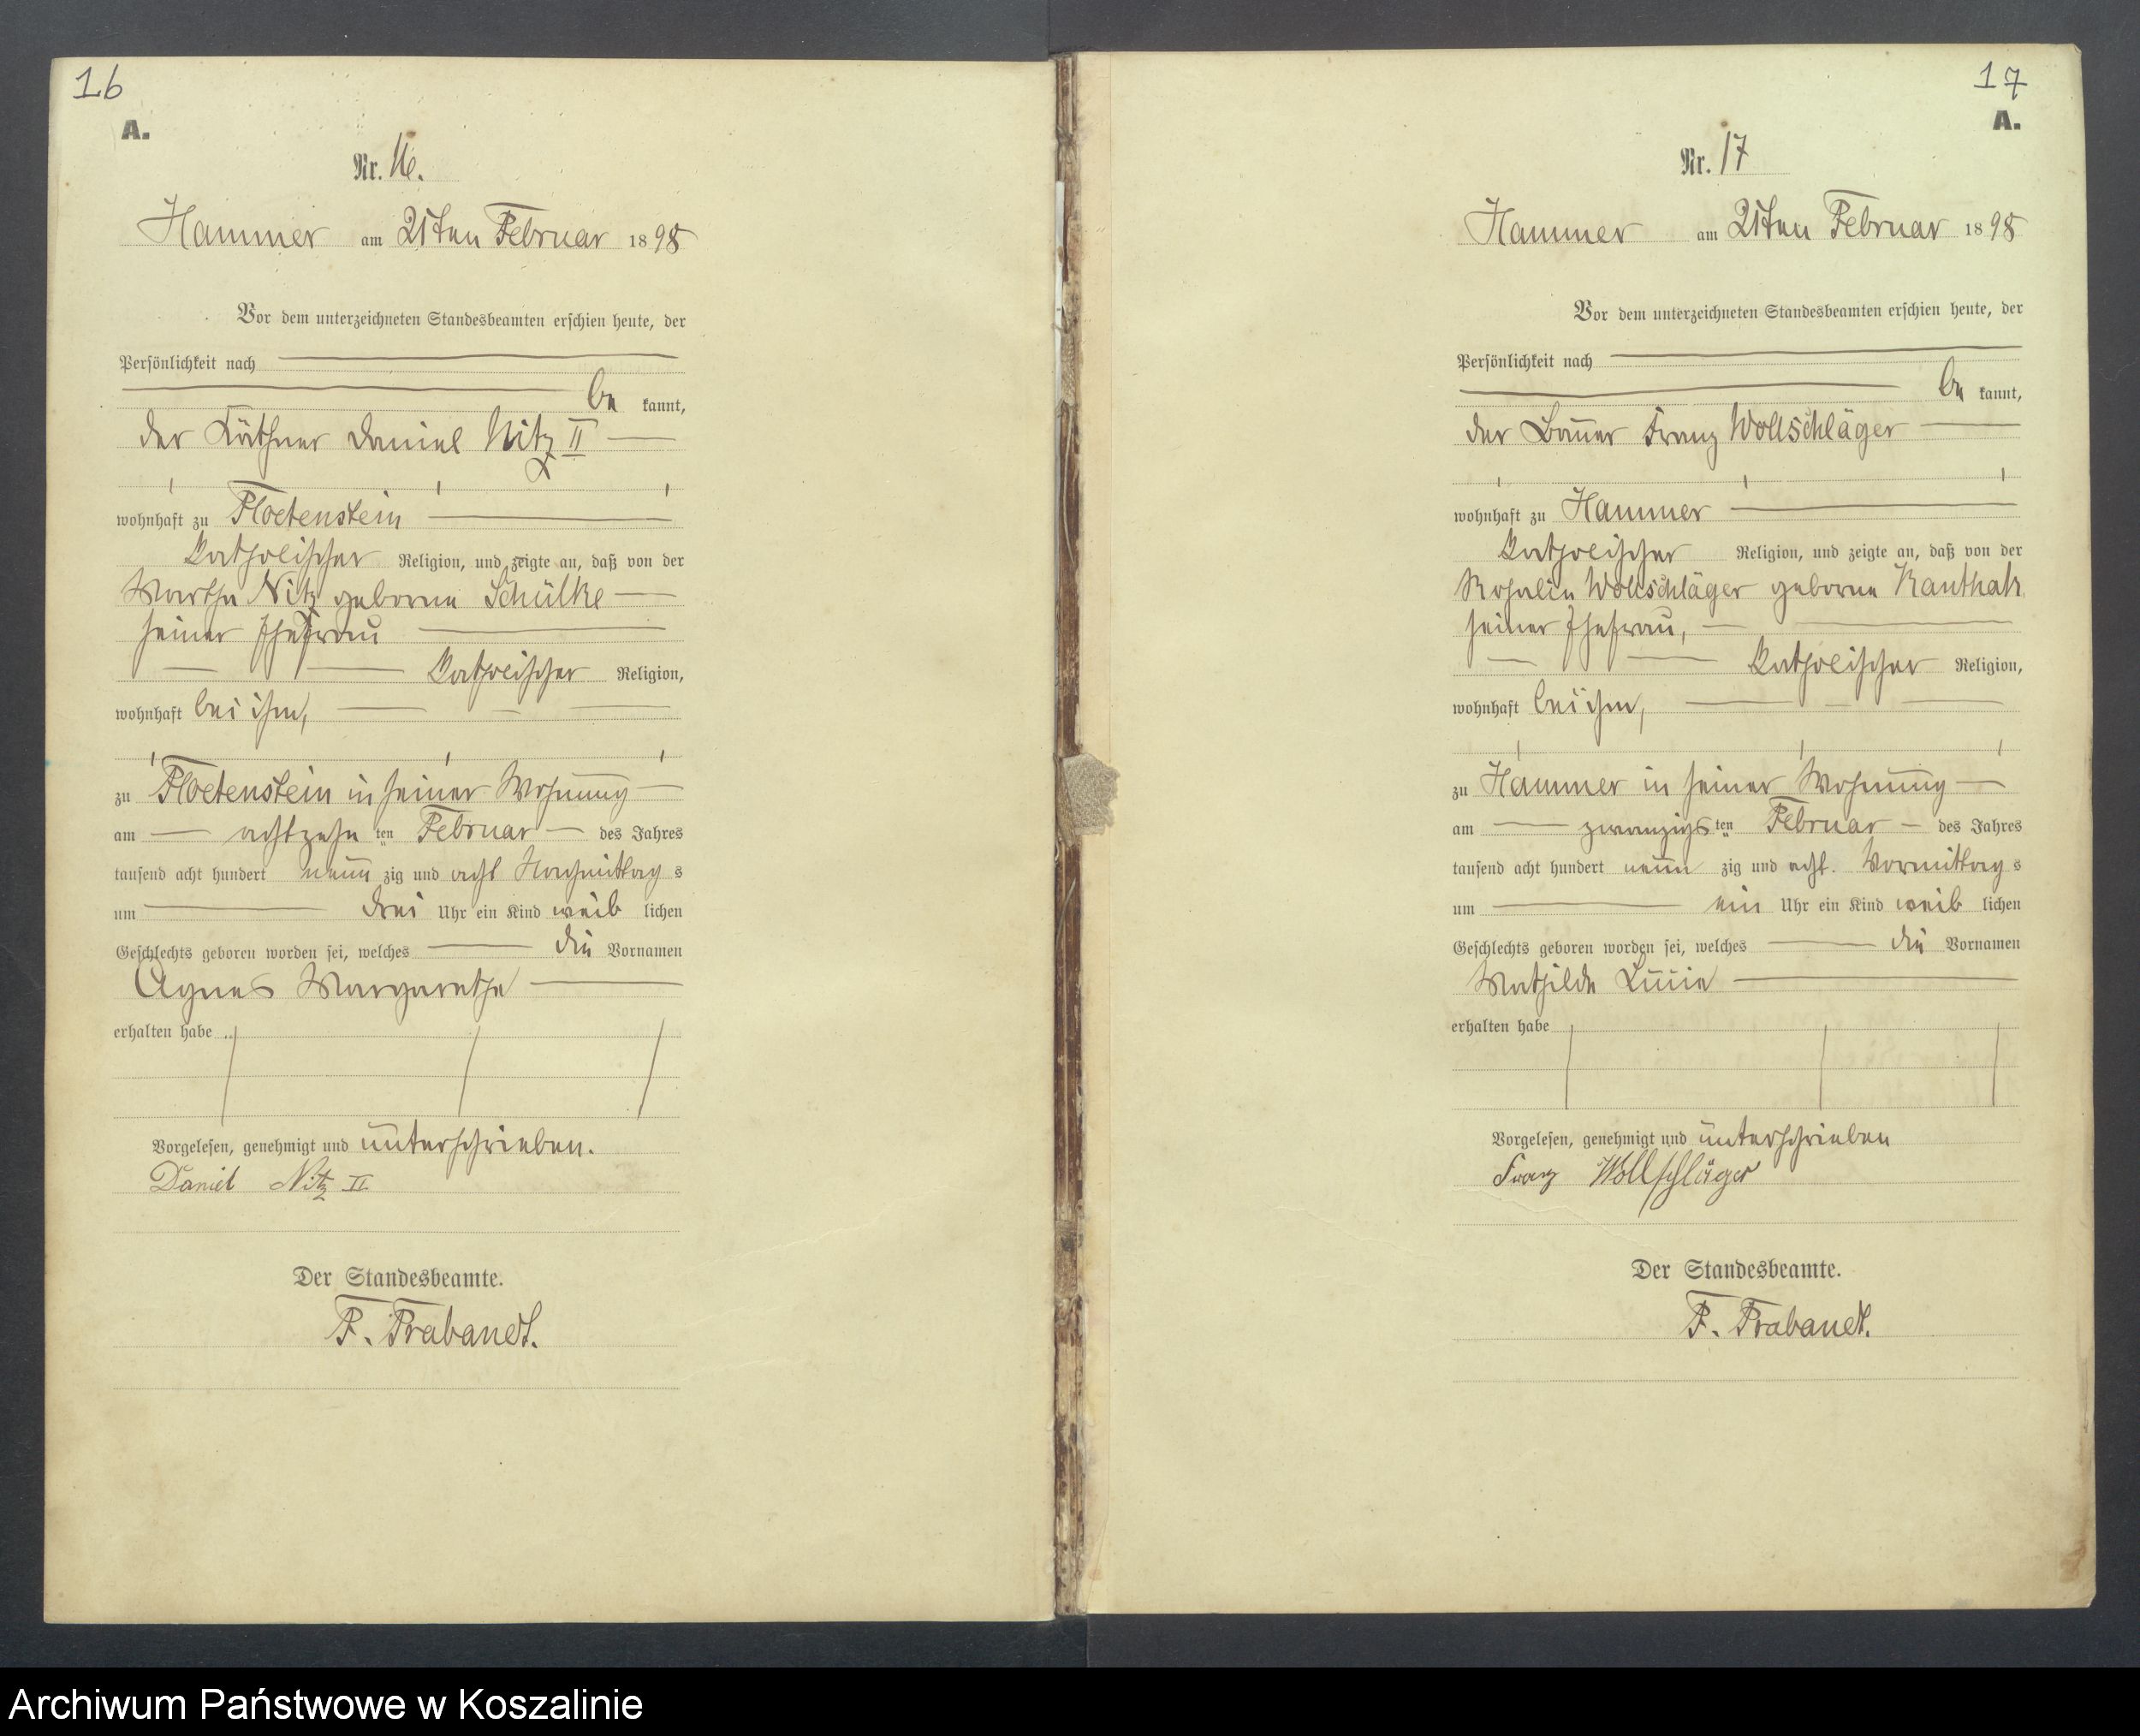 16
A.
Nr. 16.
Hammer am 21ten Februar 1898
Vor dem unterzeichneten Standesbeamten erschien heute, der
Persönlichkeit nach
be kannt,
der Käthner Daniel Nitz II
wohnhaft zu Floetenstein
katholischer Religion, und zeigte an, daß von der
Martha Nitz geborne Schülke
seiner Ehefrau
katholischer Religion,
wohnhaft bei ihm,
zu Floetenstein in seiner Wohnung
am achtzehn ten Februar des Jahres
tausend acht hundert neun zig und acht Nachmittag s
um drei Uhr ein Kind weib lichen
Geschlechts geboren worden sei, welches die Vornamen
Agnes Margarethe
erhalten habe
Vorgelesen, genehmigt und unterschrieben.
Daniel Nitz II
Der Standesbeamte.
F. Trabandt.
17
A.
Nr. 17
Hammer am 21ten Februar 1898
Vor dem unterzeichneten Standesbeamten erschien heute, der
Persönlichkeit nach
be kannt,
der Bauer Franz Wollschläger
wohnhaft zu Hammer
katholischer Religion, und zeigte an, daß von der
Rosalie Wollschläger geborne Kanthak
seiner Ehefrau,
katholischer Religion,
wohnhaft bei ihm,
zu Hammer in seiner Wohnung
am zwanzigs ten Februar des Jahres
tausend acht hundert neun zig und acht. Vormittag s
um ein Uhr ein Kind weib lichen
Geschlechts geboren worden sei, welches die Vornamen
Mathilde
erhalten habe
Vorgelesen, genehmigt und unterschrieben
Franz Wollschläger
Der Standesbeamte.
F. Trabandt.
Archiwum Państwowe w Koszalinie